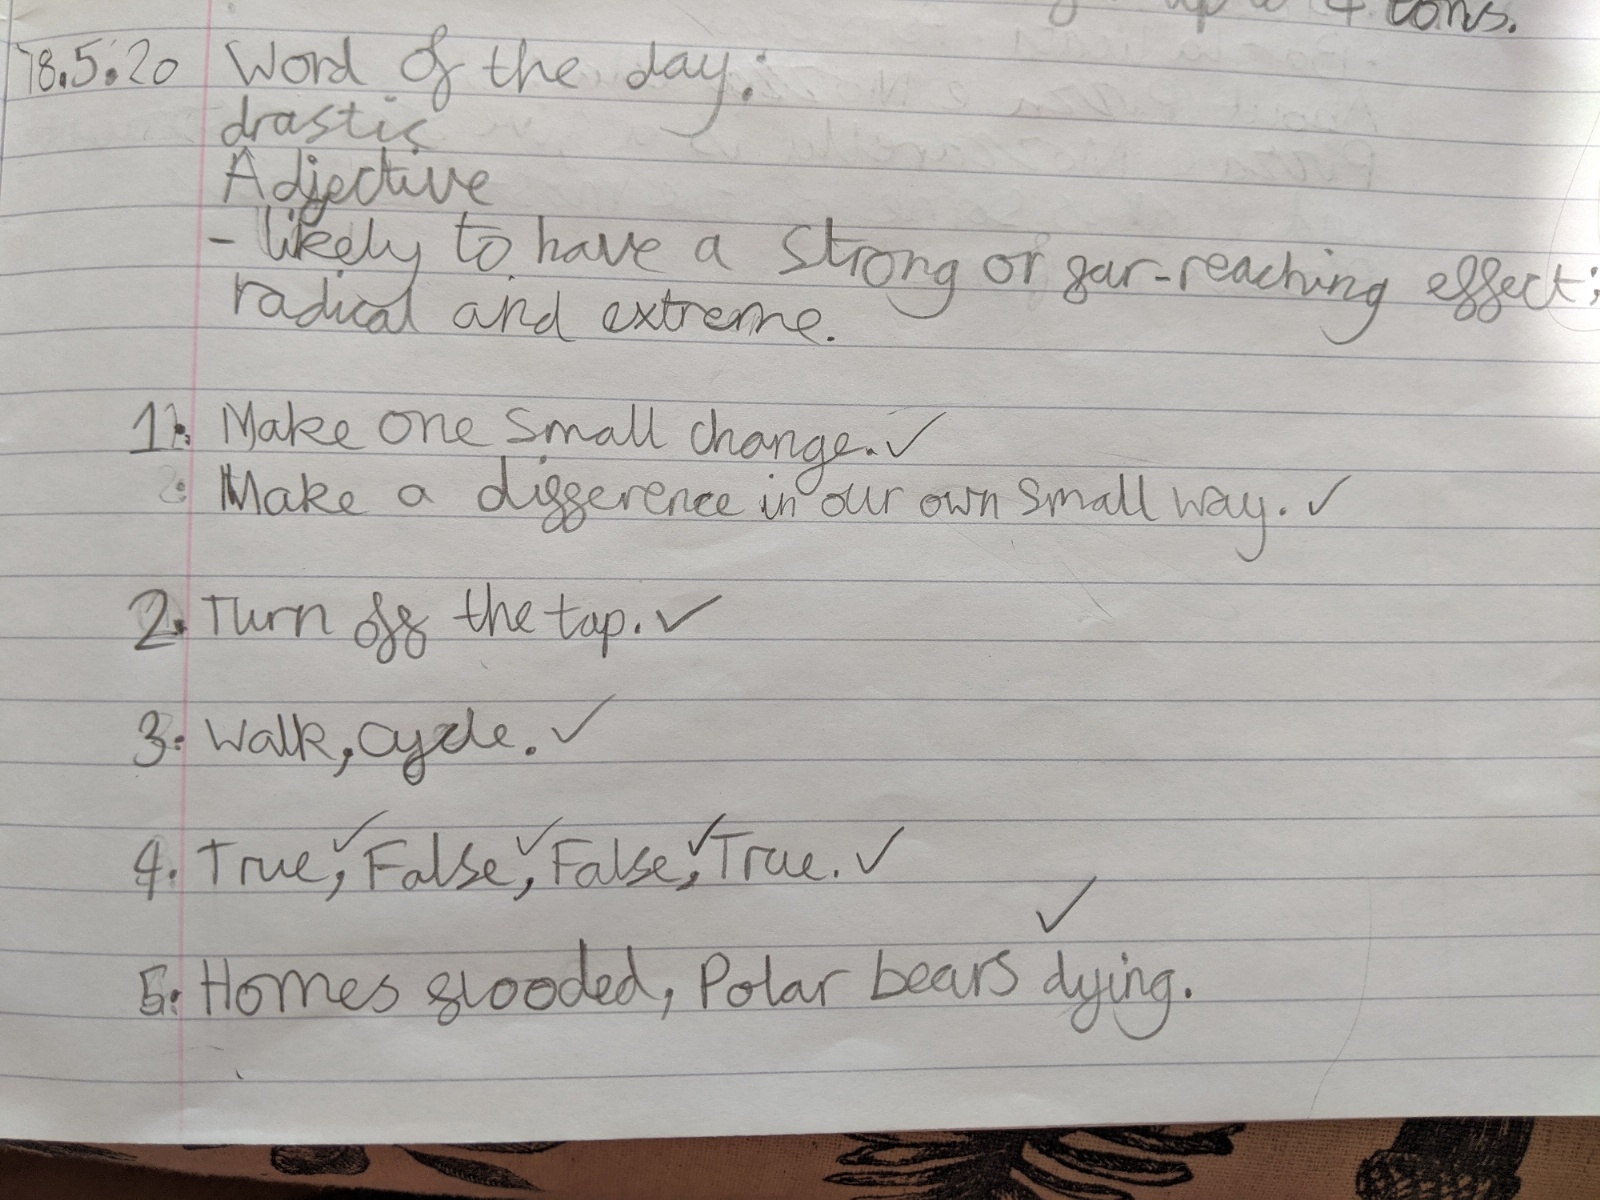 up to 4 tons.
18.5.20 Word of the day:
drastic
Adjective
- likely to have a strong or far-reaching effect;
radical and extreme.
1. Make one small change. ✓
Make a difference in our own small way. ✓
2. Turn off the tap. ✓
3. Walk, cycle. ✓
4. True, ✓ False, ✓ False, ✓ True. ✓
5. Homes flooded, Polar bears dying. ✓